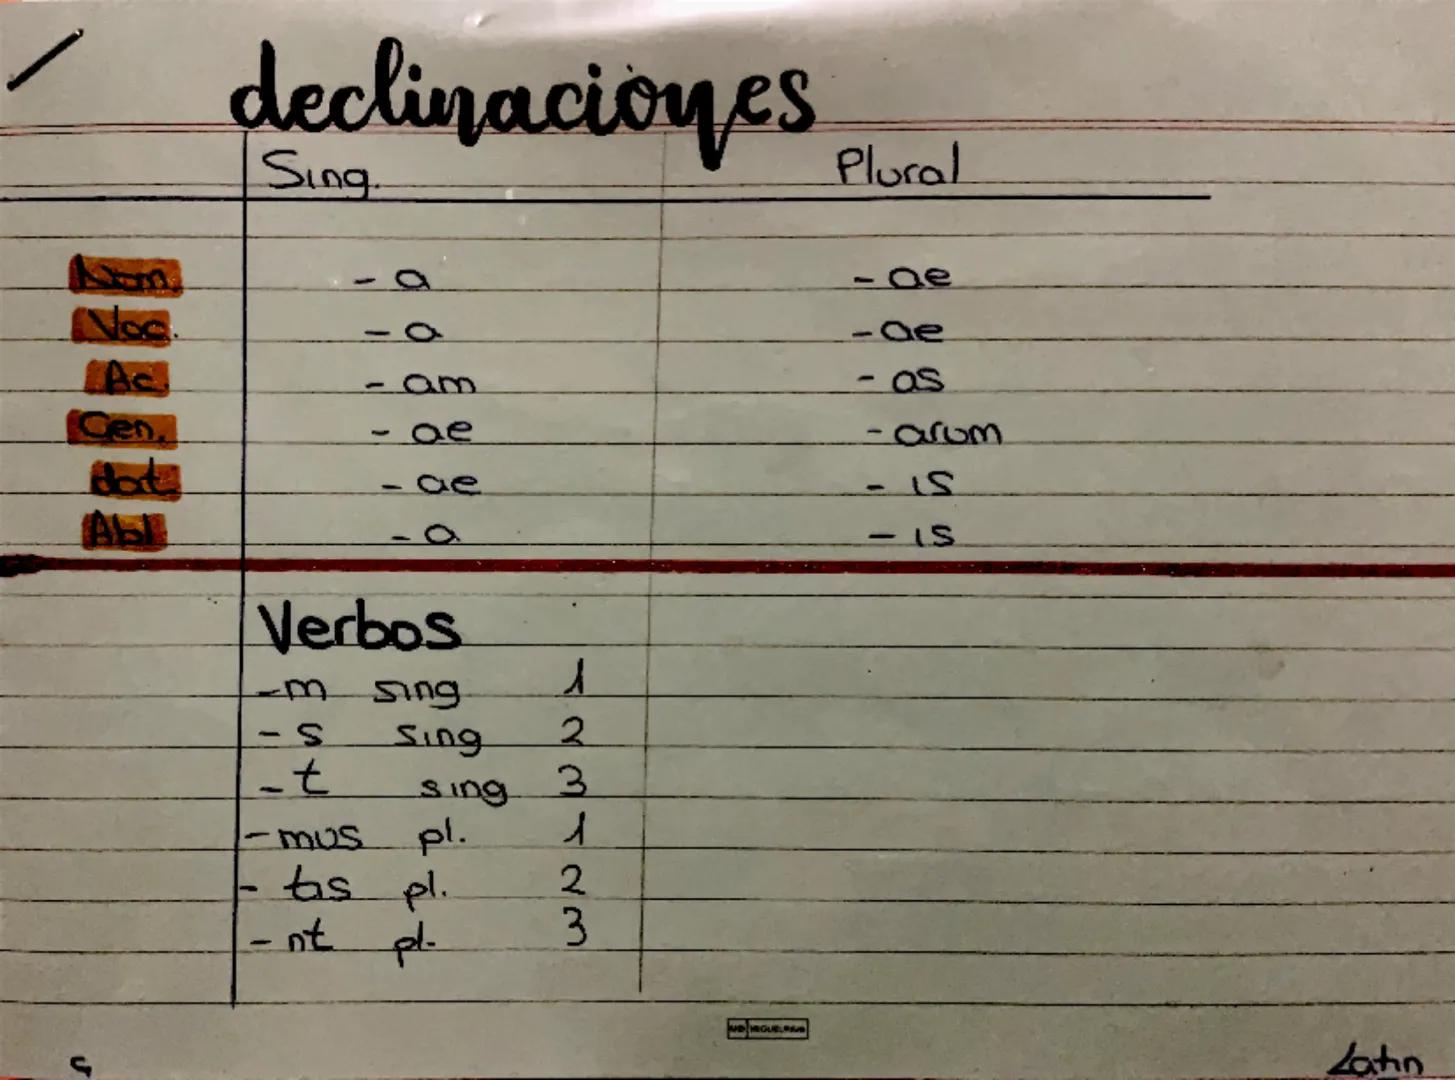 declinaciones
Sing. Plural
Nom. - a - ae
Voc. - a - ae
Ac. - am - as
Gen. - ae - arum
dat. - ae - is
Abl - a - is
Verbos
-m sing 1
-s sing 2
-t sing 3
-mus pl. 1
-tis pl. 2
-nt pl. 3
Latin